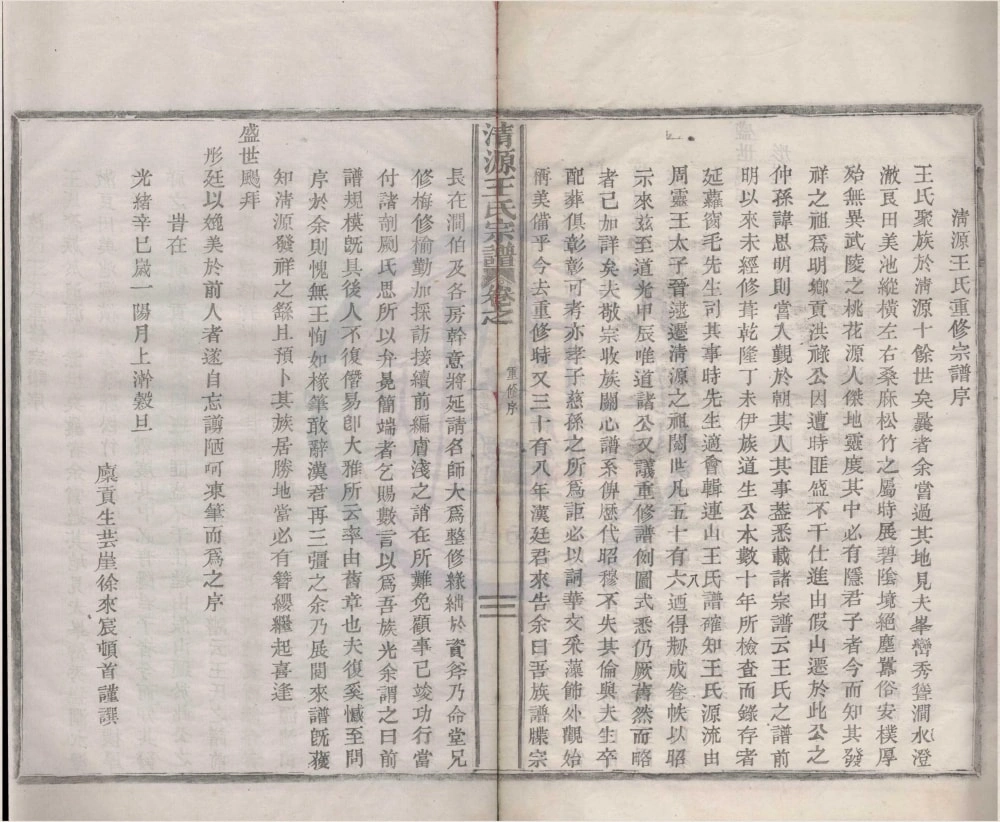 清源王氏重修宗譜序
王氏聚族於清源十餘世矣曩者余嘗過其地見夫峯巒秀聳澗水澄
澈艮田美池縱橫左右桑麻松竹之屬時展碧陰境絕塵囂俗安樸厚
殆無異武陵之桃花源人傑地靈度其中必有隱君子者今而知其發
祥之祖爲明鄉貢洪祿公因遭時匪盛不干仕進由假山遷於此公之
仲孫諱恩明則嘗入覲於朝其人其事葢悉載諸宗譜云王氏之譜前
明以來未經修葺乾隆丁未伊族道生公本數十年所檢查而錄存者
延蘿窗毛先生司其事時先生適會輯連山王氏譜確知王氏源流由
周靈王太子晉遞遷清源之祖閱世凡五十有六八廼得刱成卷帙以昭
示來兹至道光甲辰唯道諸公又議重修譜例圖式悉仍厥舊然而略
者已加詳矣夫敬宗收族關心譜系俾歷代昭穆不失其倫與夫生卒
配葬俱彰彰可考亦孝子慈孫之所爲詎必以詞華文采藻飾外觀始
衕美備乎今去重修時又三十有八年漢廷君來告余曰吾族譜牒宗
清源王氏宗譜 卷之一
重修序
三
長在澗伯及各房幹意將延請名師大爲整修綠絀於資斧乃命堂兄
修梅修楡勤加採訪接續前編膚淺之誚在所難免顧事已竣功行當
付諸剞劂氏思所以弁晃簡端者乞賜數言以爲吾族光余謂之曰前
譜規模旣具後人不復僭易卽大雅所云率由舊章也夫復奚憾至問
序於余則愧無王恂如椽筆敢辭漢君再三彊之余乃展閱來譜旣獲
知清源發祥之繇且預卜其族居勝地當必有簪纓繼起喜逢
盛世颺拜
彤廷以媲美於前人者遂自忘謭陋呵凍筆而爲之序
旹在
光緒辛巳嵗一陽月上澣穀旦
廩貢生芸崖徐來宸頓首謹譔